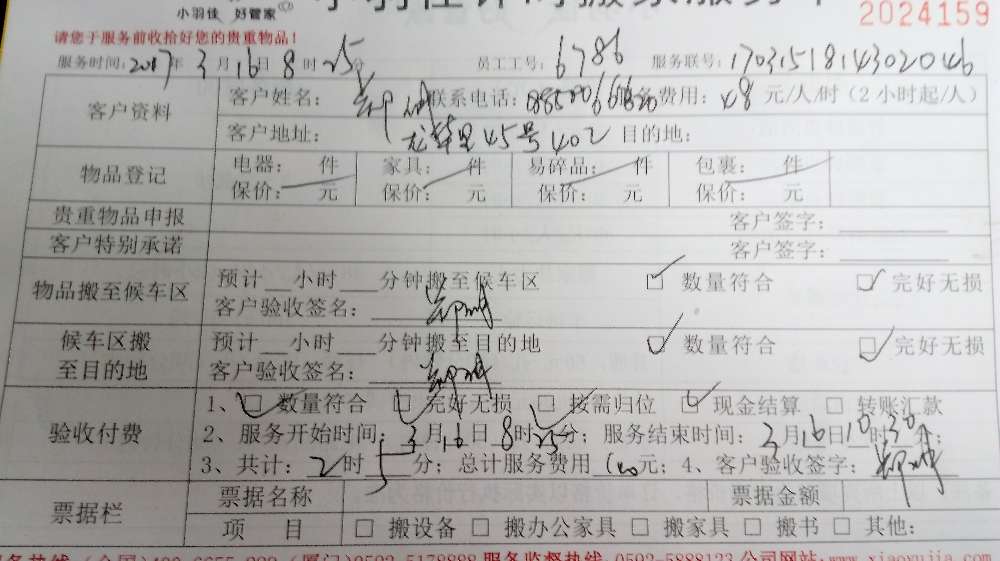 小羽佳 好管家
2024159
请您于服务前收拾好您的贵重物品!
服务时间:2017年3月16日8时25分 员工工号:6786 服务联号:1703151814302046
客户资料 客户姓名: 联系电话: 服务费用:48元/人/时(2小时起/人)
客户地址: 45号402 目的地:
物品登记 电器: 件 家具: 件 易碎品: 件 包裹: 件
保价: 元 保价: 元 保价: 元 保价: 元
贵重物品申报 客户签字:
客户特别承诺 客户签字:
物品搬至候车区 预计 小时 分钟搬至候车区 ☑ 数量符合 ☑ 完好无损
客户验收签名:
候车区搬至目的地 预计 小时 分钟搬至目的地 ☑ 数量符合 ☑ 完好无损
客户验收签名:
验收付费 1、☑ 数量符合 ☑ 完好无损 ☑ 按需归位 ☑ 现金结算 □ 转账汇款
2、服务开始时间:3月16日8时25分;服务结束时间:3月16日10时30分;
3、共计:2时5分;总计服务费用 元;4、客户验收签字:
票据栏 票据名称 票据金额
项 目 □ 搬设备 □ 搬办公家具 □ 搬家具 □ 搬书 □ 其他:
服务监督热线 0592-5888123 公司网站:www.xiaoyujia.com